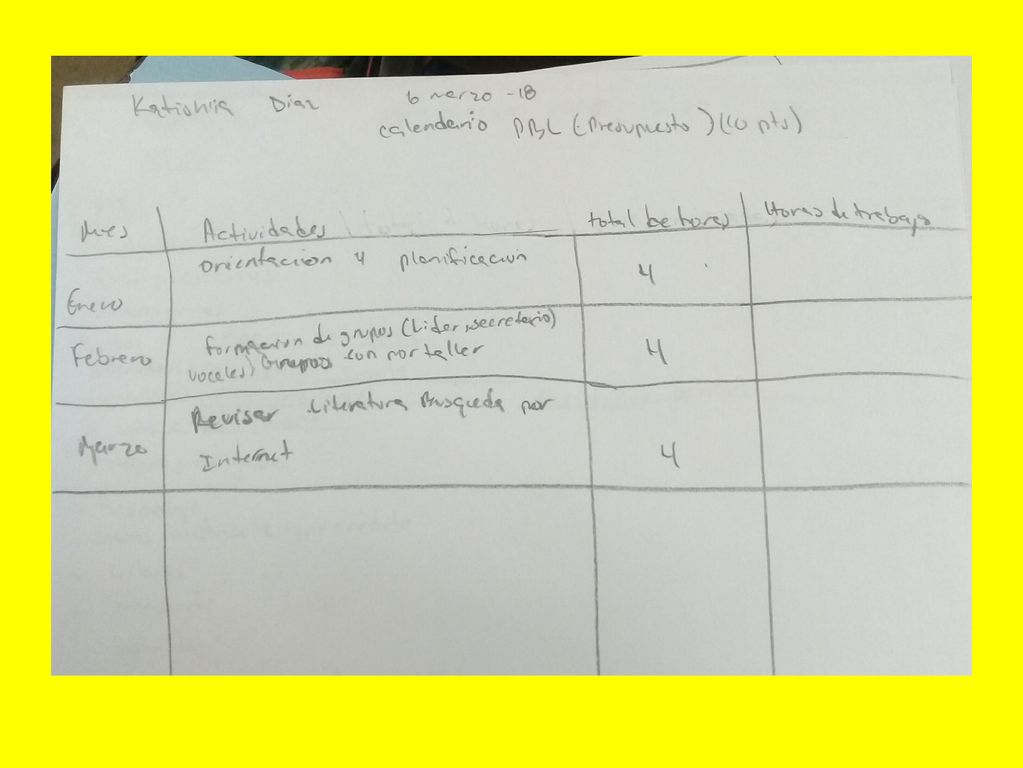 Diaz 6 marzo -18
calendario PBL (Presupuesto) (10 pts)
Mes Actividades total de horas Horas de trabajo
Enero orientacion y planificacion 4
Febrero formacion de grupos (Lider, secretario)
vocales) Grupos con por taller 4
Marzo Revisar Literatura Busqueda por
Internet 4